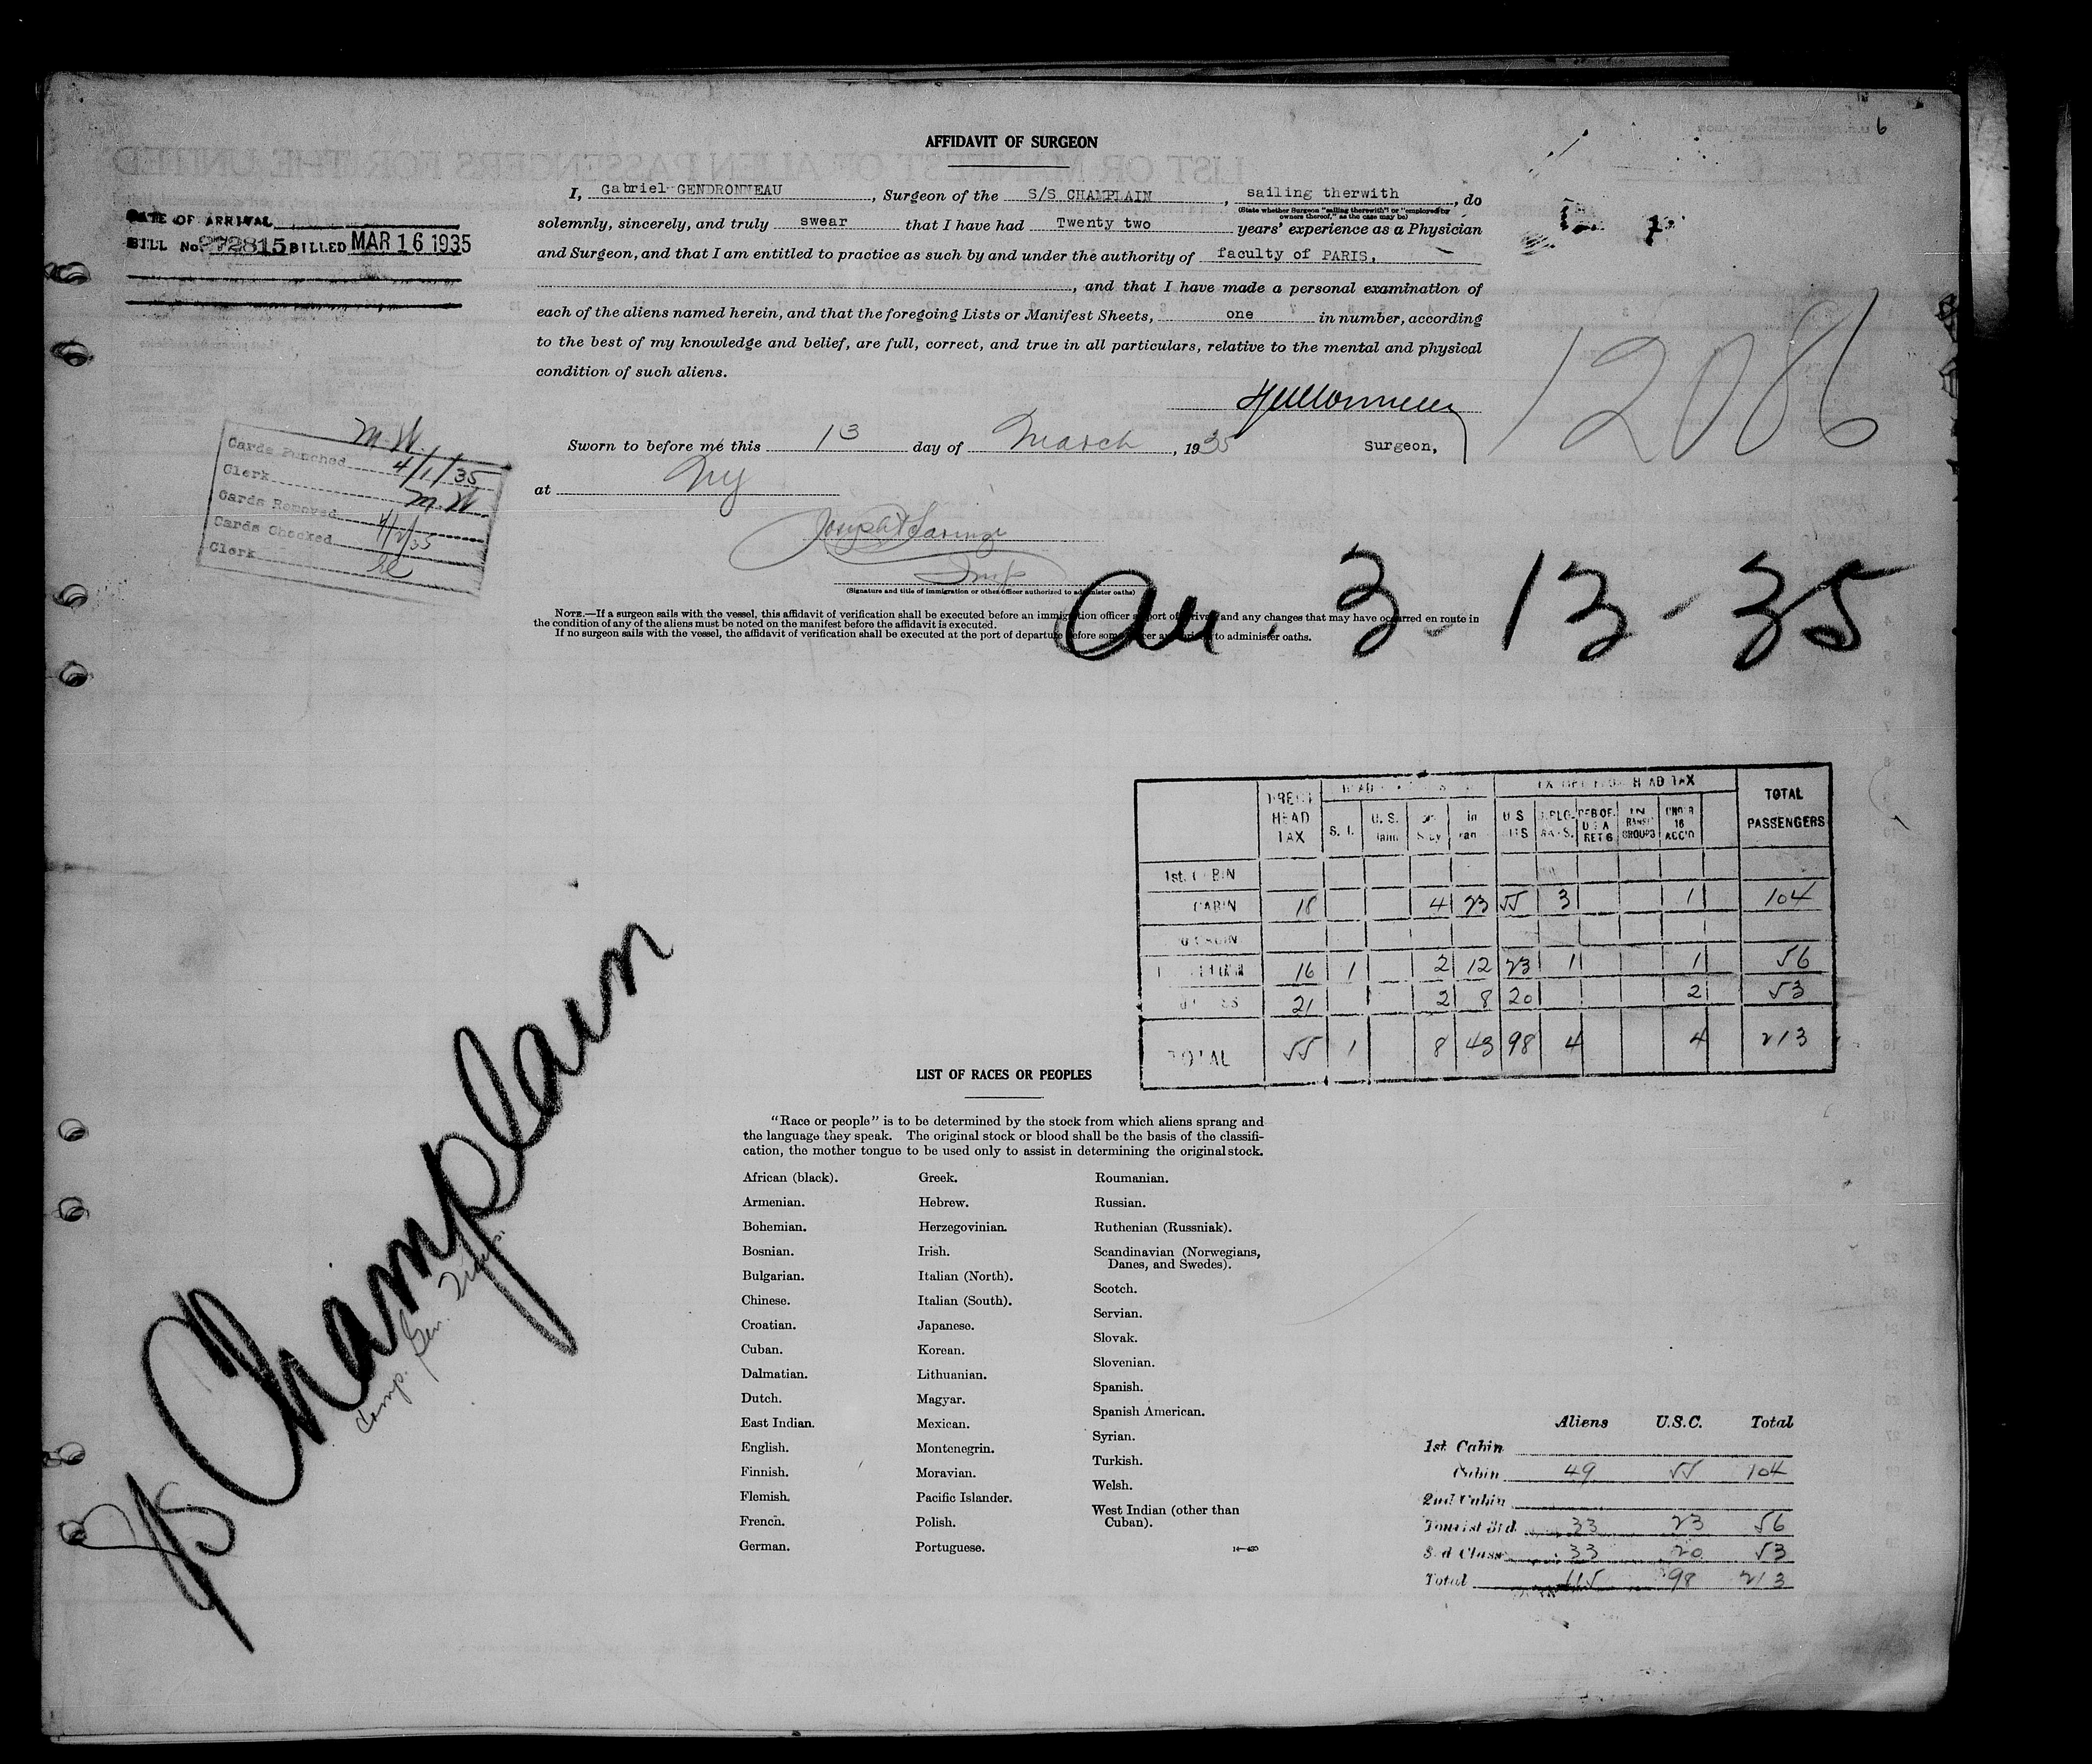 6
AFFIDAVIT OF SURGEON
I, Gabriel GENDRONNEAU, Surgeon of the S/S CHAMPLAIN, sailing therwith, do
(State whether Surgeon "sailing therewith" or "employed by owners thereof," as the case may be)
solemnly, sincerely, and truly swear that I have had Twenty two years' experience as a Physician
and Surgeon, and that I am entitled to practice as such by and under the authority of faculty of PARIS,
, and that I have made a personal examination of
each of the aliens named herein, and that the foregoing Lists or Manifest Sheets, one in number, according
to the best of my knowledge and belief, are full, correct, and true in all particulars, relative to the mental and physical
condition of such aliens.
Sworn to before me this 13 day of March, 1935
Surgeon,
at NY
(Signature and title of immigration or other officer authorized to administer oaths)
NOTE.—If a surgeon sails with the vessel, this affidavit of verification shall be executed before an immigration officer at port of arrival and any changes that may have occurred en route in
the condition of any of the aliens must be noted on the manifest before the affidavit is executed.
If no surgeon sails with the vessel, the affidavit of verification shall be executed at the port of departure before some officer authorized to administer oaths.
DATE OF ARRIVAL
BILL No. 272815 BILLED MAR 16 1935
M.W.
Cards Punched 4/1/35
Clerk M.W
Cards Removed
Cards Checked 4/2/35
Clerk
12086
3-13-35
DIRECT HEAD TAX
HEAD TAX
TOTAL PASSENGERS
S. I. U.S. in U.S. UNDER 16 ACC'D
1st. CABIN
CABIN 18 4 23 55 3 1 104
16 1 2 12 23 1 1 56
21 2 8 20 2 53
TOTAL 55 1 8 43 98 4 4 213
S/S Champlain
Comp. Gen. Trans.
LIST OF RACES OR PEOPLES
"Race or people" is to be determined by the stock from which aliens sprang and
the language they speak. The original stock or blood shall be the basis of the classifi-
cation, the mother tongue to be used only to assist in determining the original stock.
African (black).
Armenian.
Bohemian.
Bosnian.
Bulgarian.
Chinese.
Croatian.
Cuban.
Dalmatian.
Dutch.
East Indian.
English.
Finnish.
Flemish.
French.
German.
Greek.
Hebrew.
Herzegovinian.
Irish.
Italian (North).
Italian (South).
Japanese.
Korean.
Lithuanian.
Magyar.
Mexican.
Montenegrin.
Moravian.
Pacific Islander.
Polish.
Portuguese.
Roumanian.
Russian.
Ruthenian (Russniak).
Scandinavian (Norwegians,
Danes, and Swedes).
Scotch.
Servian.
Slovak.
Slovenian.
Spanish.
Spanish American.
Syrian.
Turkish.
Welsh.
West Indian (other than
Cuban).
Aliens U.S.C. Total
1st Cabin
Cabin 49 55 104
2nd Cabin
Tourist 3rd 33 23 56
3rd Class 33 20 53
Total 115 98 213